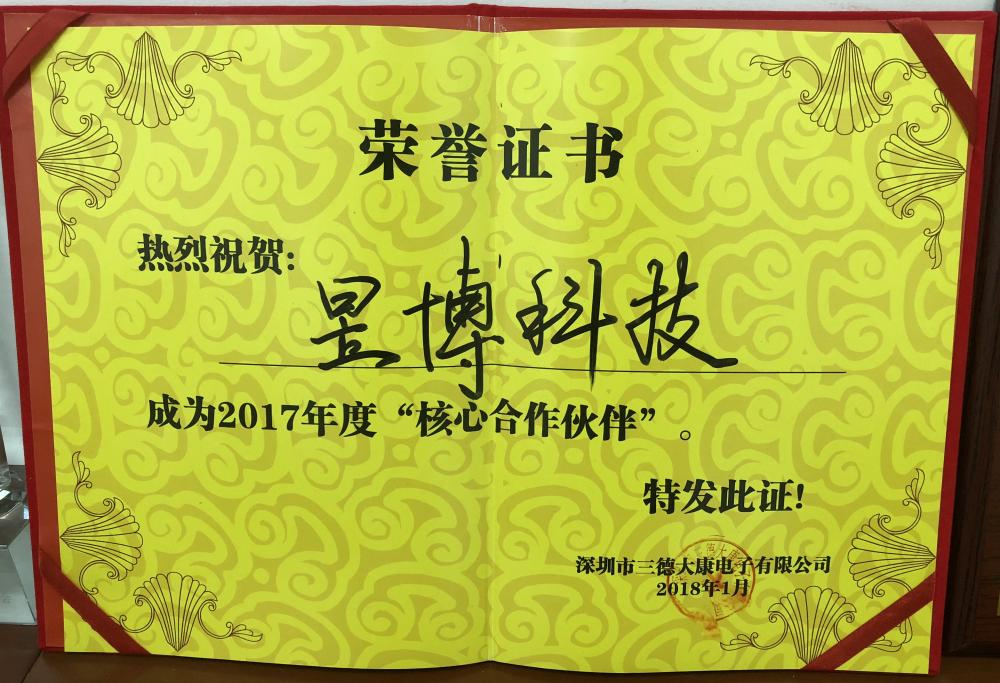 荣誉证书
热烈祝贺:
昱博科技
成为2017年度“核心合作伙伴”。
特发此证!
深圳市三德大康电子有限公司
2018年1月